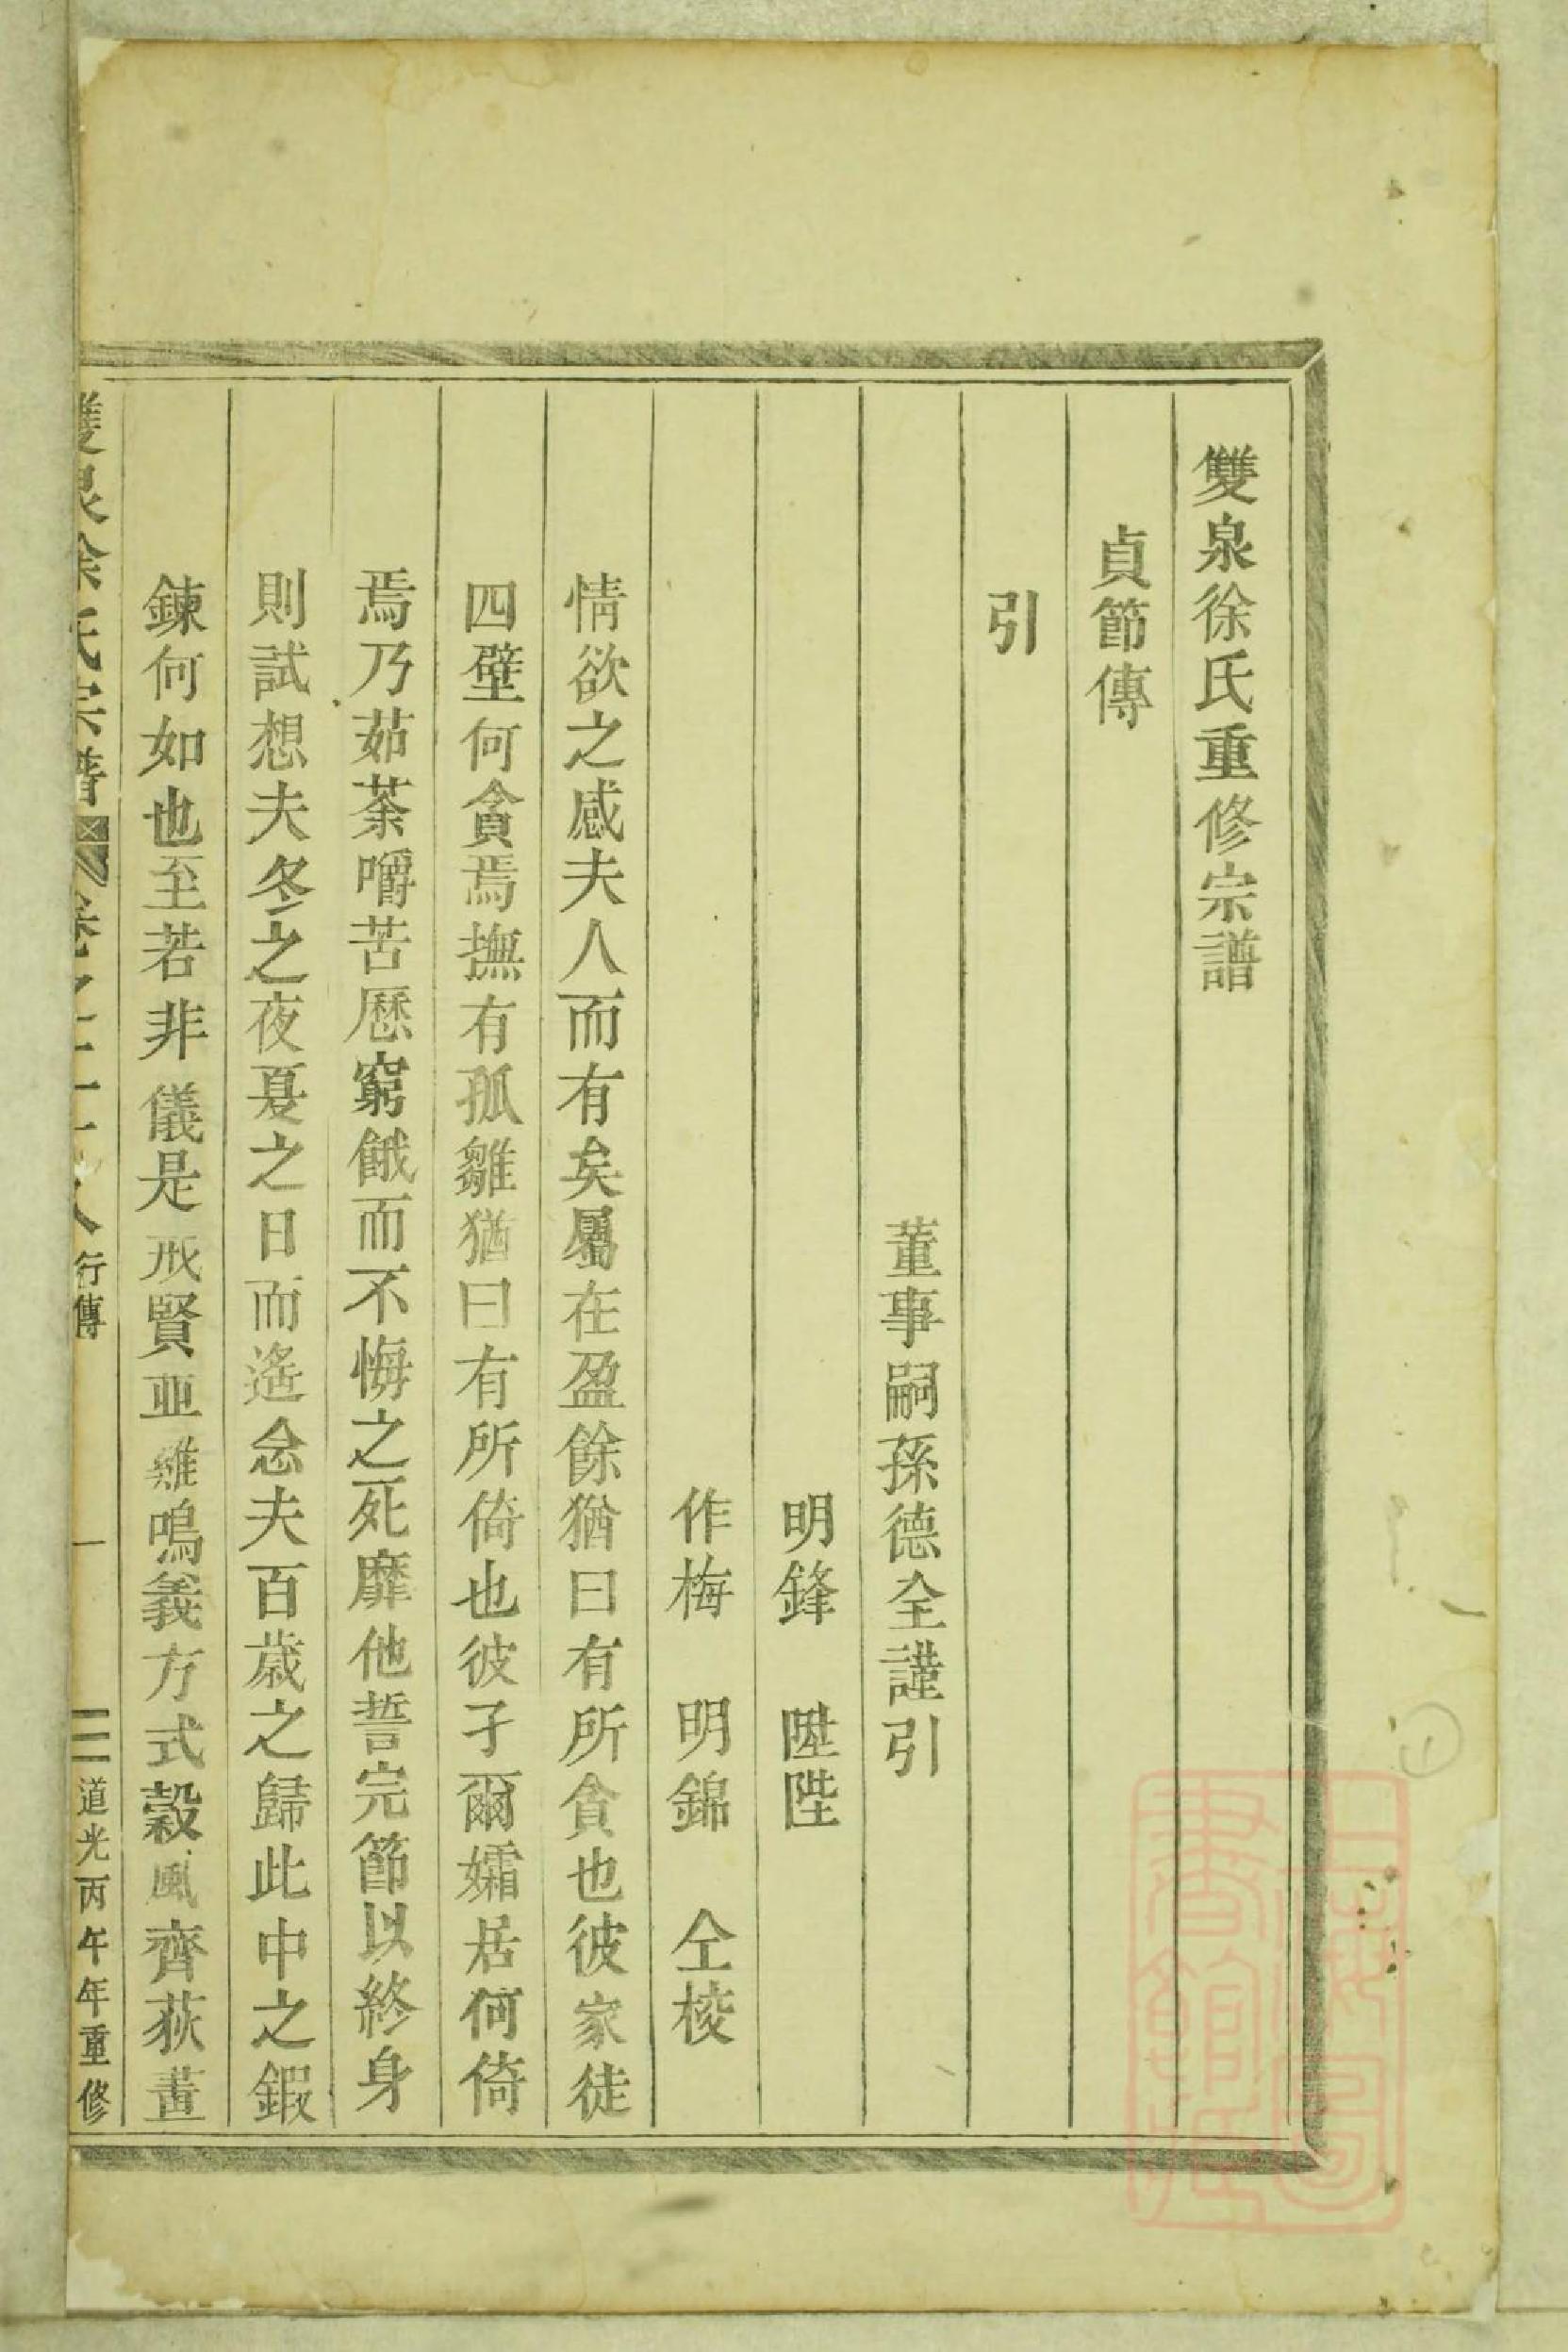 雙泉徐氏重修宗譜
貞節傳
引
董事嗣孫德全謹引
明鋒　陞陛
作梅　明錦　仝梭
情欲之感夫人而有矣屬在盈餘猶曰有所貪也彼家徒
四壁何貪焉撫有孤雛猶曰有所倚也彼孑爾孀居何倚
焉乃茹荼嚼苦厯窮餓而不悔之死靡他誓完節以終身
則試想夫冬之夜夏之日而遙念夫百歲之歸此中之鍜
鍊何如也至若非儀是戒賢亚雞鳴義方式穀風齊荻畫
雙泉徐氏宗譜 卷之 行傳 一 道光丙午年重修
上海圖書館藏